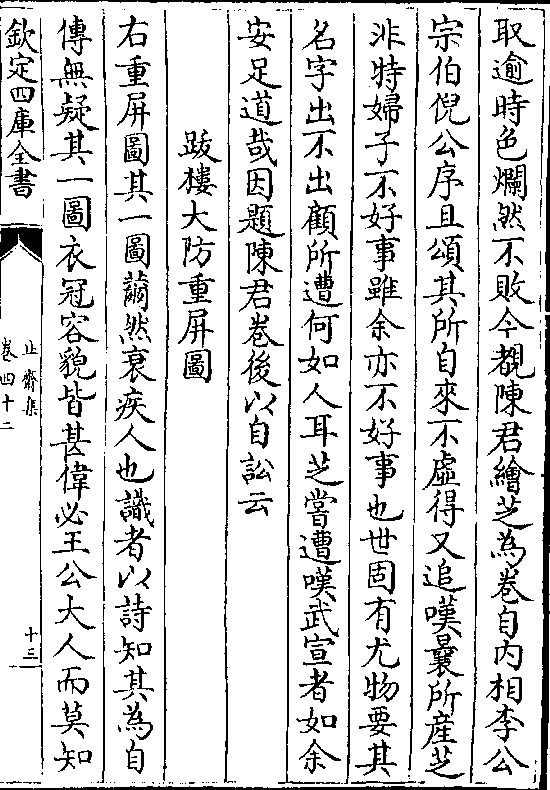 取逾時色爛然不敗今覩陳君繪芝為巻自内相李公
宗伯倪公序且頌其所自來不虛得又追嘆曩所産芝
非特婦子不好事雖余亦不好事也世固有尤物要其
名字出不出顧所遭何如人耳芝嘗遭嘆武宣者如余
安足道哉因題陳君巻後以自訟云
跋樓大防重屏圖
右重屏圖其一圖薾然衰疾人也識者以詩知其為自
傳無疑其一圖衣冠容貌皆甚偉必王公大人而莫知
欽定四庫全書
止齋集
巻四十二
十三